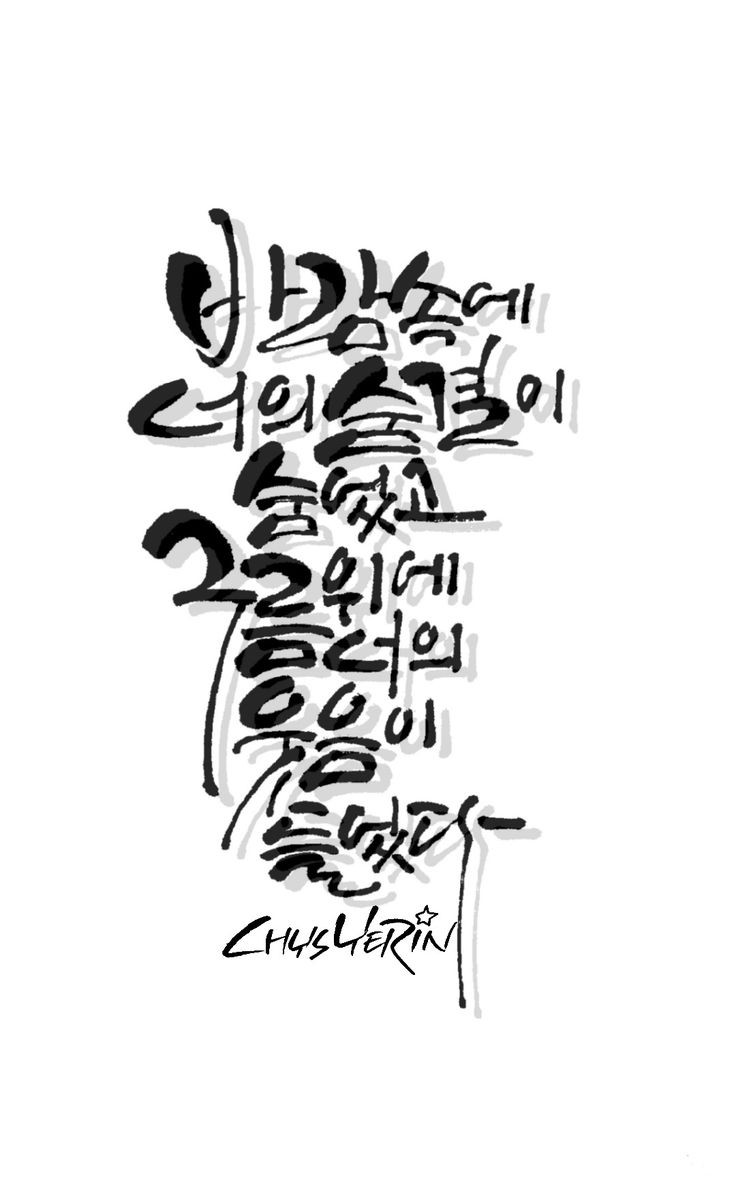 바람속에
너의숨결이
숨었고
구름위에
너의
웃음이
들었다
CHYSYERIN